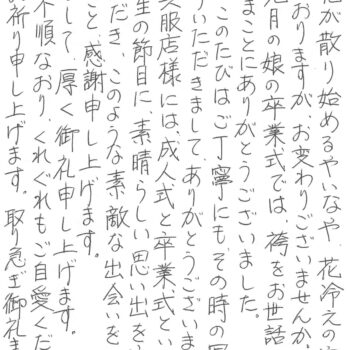 が散り始めるやいなや、花冷えの
おりますが、お変わりございませんか
月の娘の卒業式では、袴をお世話
まことにありがとうございました。
このたびはご丁寧にも、その時の写
いただきまして、ありがとうございま
呉服店様には、成人式と卒業式とい
生の節目に、素晴らしい思い出を
だき、このような素敵な出会いを
こと、感謝申し上げます。
して、厚く御礼申し上げます。
不順なおり、くれぐれもご自愛くだ
お祈り申し上げます。取り急ぎ御礼ま